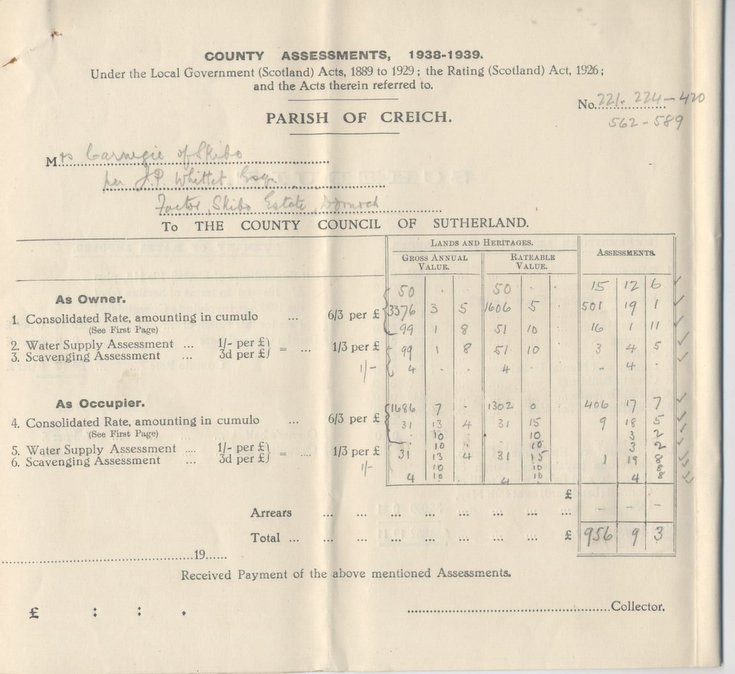 COUNTY ASSESSMENTS, 1938-1939.
Under the Local Government (Scotland) Acts, 1889 to 1929; the Rating (Scotland) Act, 1926;
and the Acts therein referred to.
No. 221. 224-420
562-589
PARISH OF CREICH.
Mrs Carnegie of Skibo
per J.P. Whittet, Esqr.
Factor, Skibo Estate, Dornoch
To THE COUNTY COUNCIL OF SUTHERLAND.
LANDS AND HERITAGES.
GROSS ANNUAL VALUE. RATEABLE VALUE. ASSESSMENTS.
As Owner.
50 . . 50 . . 15 12 6
1. Consolidated Rate, amounting in cumulo ... 6/3 per £ 3376 3 5 1606 5 . 501 19 1
(See First Page) 99 1 8 51 10 16 1 11
2. Water Supply Assessment ... 1/- per £
3. Scavenging Assessment ... 3d per £ = ... 1/3 per £ 99 1 8 51 10 3 4 5
1/- 4 . . 4 . . . 4 .
As Occupier.
1686 7 . 1302 0 406 17 7
4. Consolidated Rate, amounting in cumulo ... 6/3 per £ 31 13 4 31 15 9 18 5
(See First Page) 10 10 3 2
10 10 3 2
5. Water Supply Assessment ... 1/- per £
6. Scavenging Assessment 3d per £ = ... 1/3 per £ 31 13 4 31 15 1 19 8
1/- 10 10 8
4 10 4 10 4 8
£
Arrears ... ... ... ... ... ... - - -
Total ... ... ... ... ... ... ... £ 956 9 3
19......
Received Payment of the above mentioned Assessments.
£ : : . Collector.